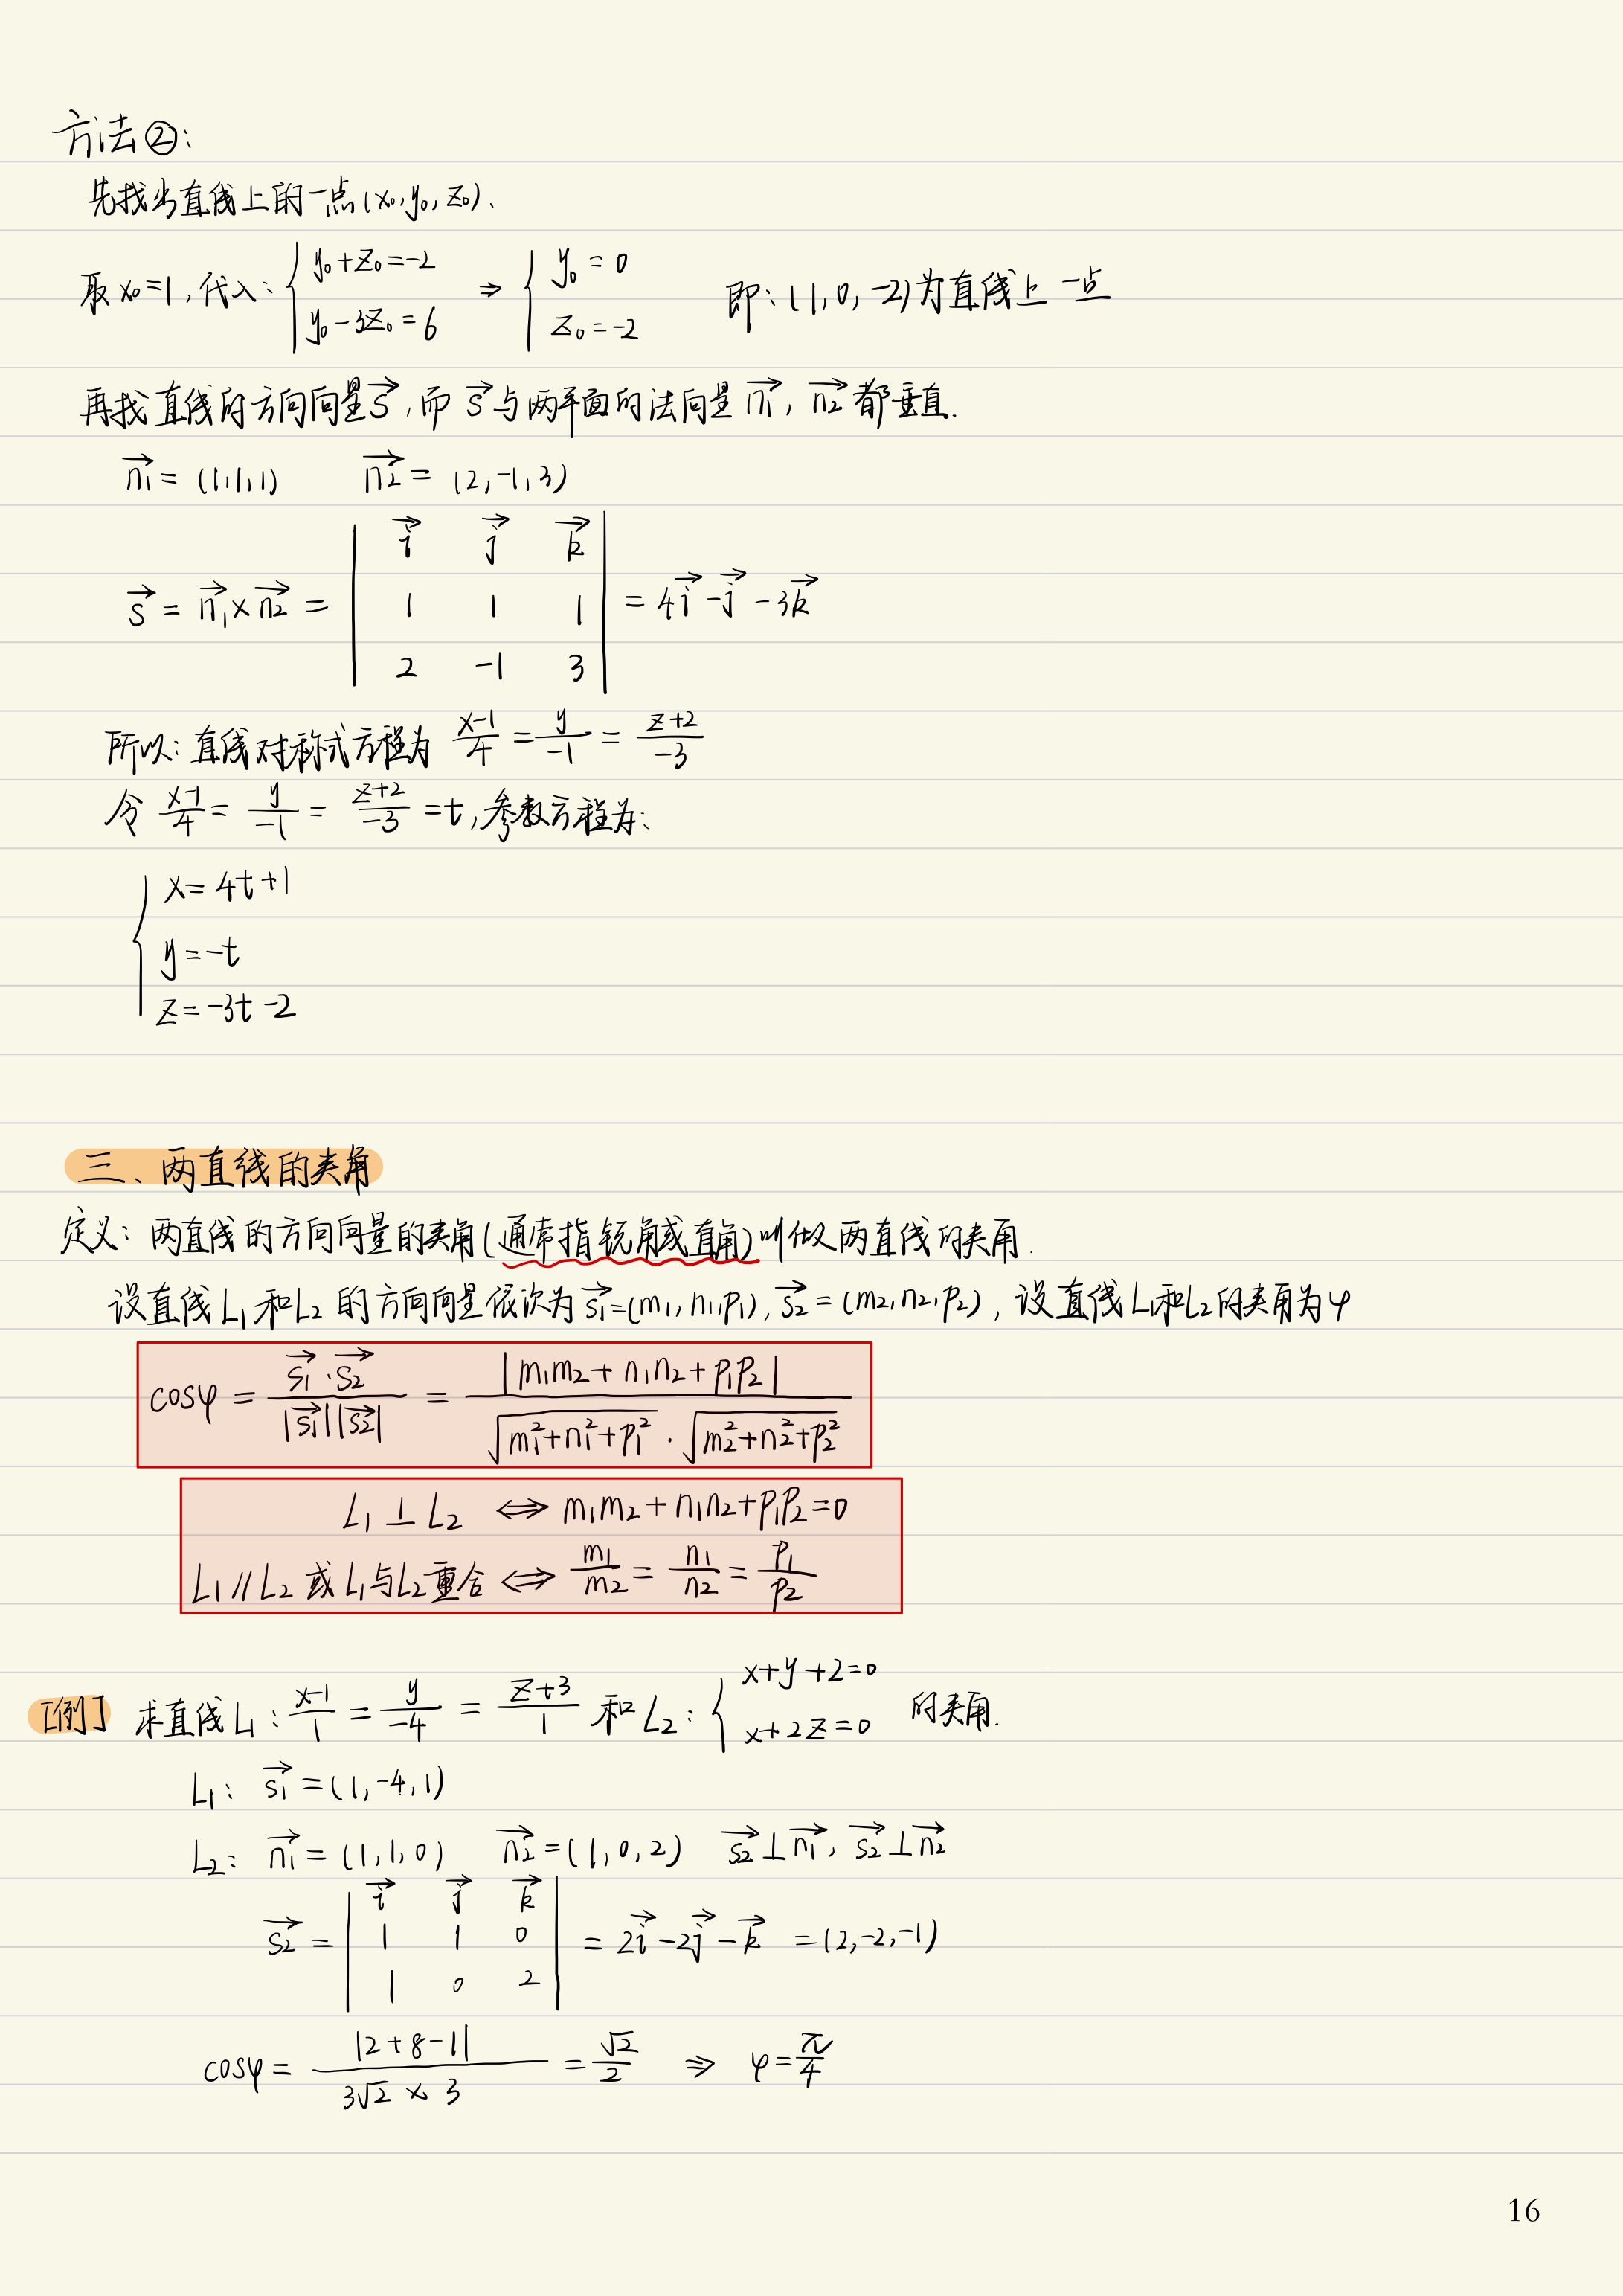 方法②:
先找出直线上的一点(x₀, y₀, z₀).
取x₀=1,代入: { y₀+z₀=-2 ; y₀-3z₀=6 ⇒ { y₀=0 ; z₀=-2 即:(1,0,-2)为直线上一点
再找直线的方向向量s⃗,而s⃗与两平面的法向量n₁⃗, n₂⃗都垂直.
n₁⃗=(1,1,1) n₂⃗=(2,-1,3)
s⃗=n₁⃗×n₂⃗= | i⃗ j⃗ k⃗ ; 1 1 1 ; 2 -1 3 | =4i⃗-j⃗-3k⃗
所以:直线对称式方程为 (x-1)/4=y/(-1)=(z+2)/(-3)
令 (x-1)/4=y/(-1)=(z+2)/(-3)=t,参数方程为:
{ x=4t+1
y=-t
z=-3t-2
三、两直线的夹角
定义:两直线的方向向量的夹角(通常指锐角或直角)叫做两直线的夹角.
设直线L₁和L₂的方向向量依次为s₁⃗=(m₁,n₁,p₁),s₂⃗=(m₂,n₂,p₂),设直线L₁和L₂的夹角为φ
cosφ= (s₁⃗·s₂⃗)/(|s₁⃗||s₂⃗|) = |m₁m₂+n₁n₂+p₁p₂|/(√(m₁²+n₁²+p₁²)·√(m₂²+n₂²+p₂²))
L₁⊥L₂ ⇔ m₁m₂+n₁n₂+p₁p₂=0
L₁∥L₂或L₁与L₂重合 ⇔ m₁/m₂=n₁/n₂=p₁/p₂
[例] 求直线L₁: (x-1)/1=y/(-4)=(z+3)/1 和L₂: { x+y+2=0 ; x+2z=0 的夹角.
L₁: s₁⃗=(1,-4,1)
L₂: n₁⃗=(1,1,0) n₂⃗=(1,0,2) s₂⃗⊥n₁⃗, s₂⃗⊥n₂⃗
s₂⃗= | i⃗ j⃗ k⃗ ; 1 1 0 ; 1 0 2 | =2i⃗-2j⃗-k⃗ =(2,-2,-1)
cosφ= |2+8-1|/(3√2×3) =√2/2 ⇒ φ=π/4
16